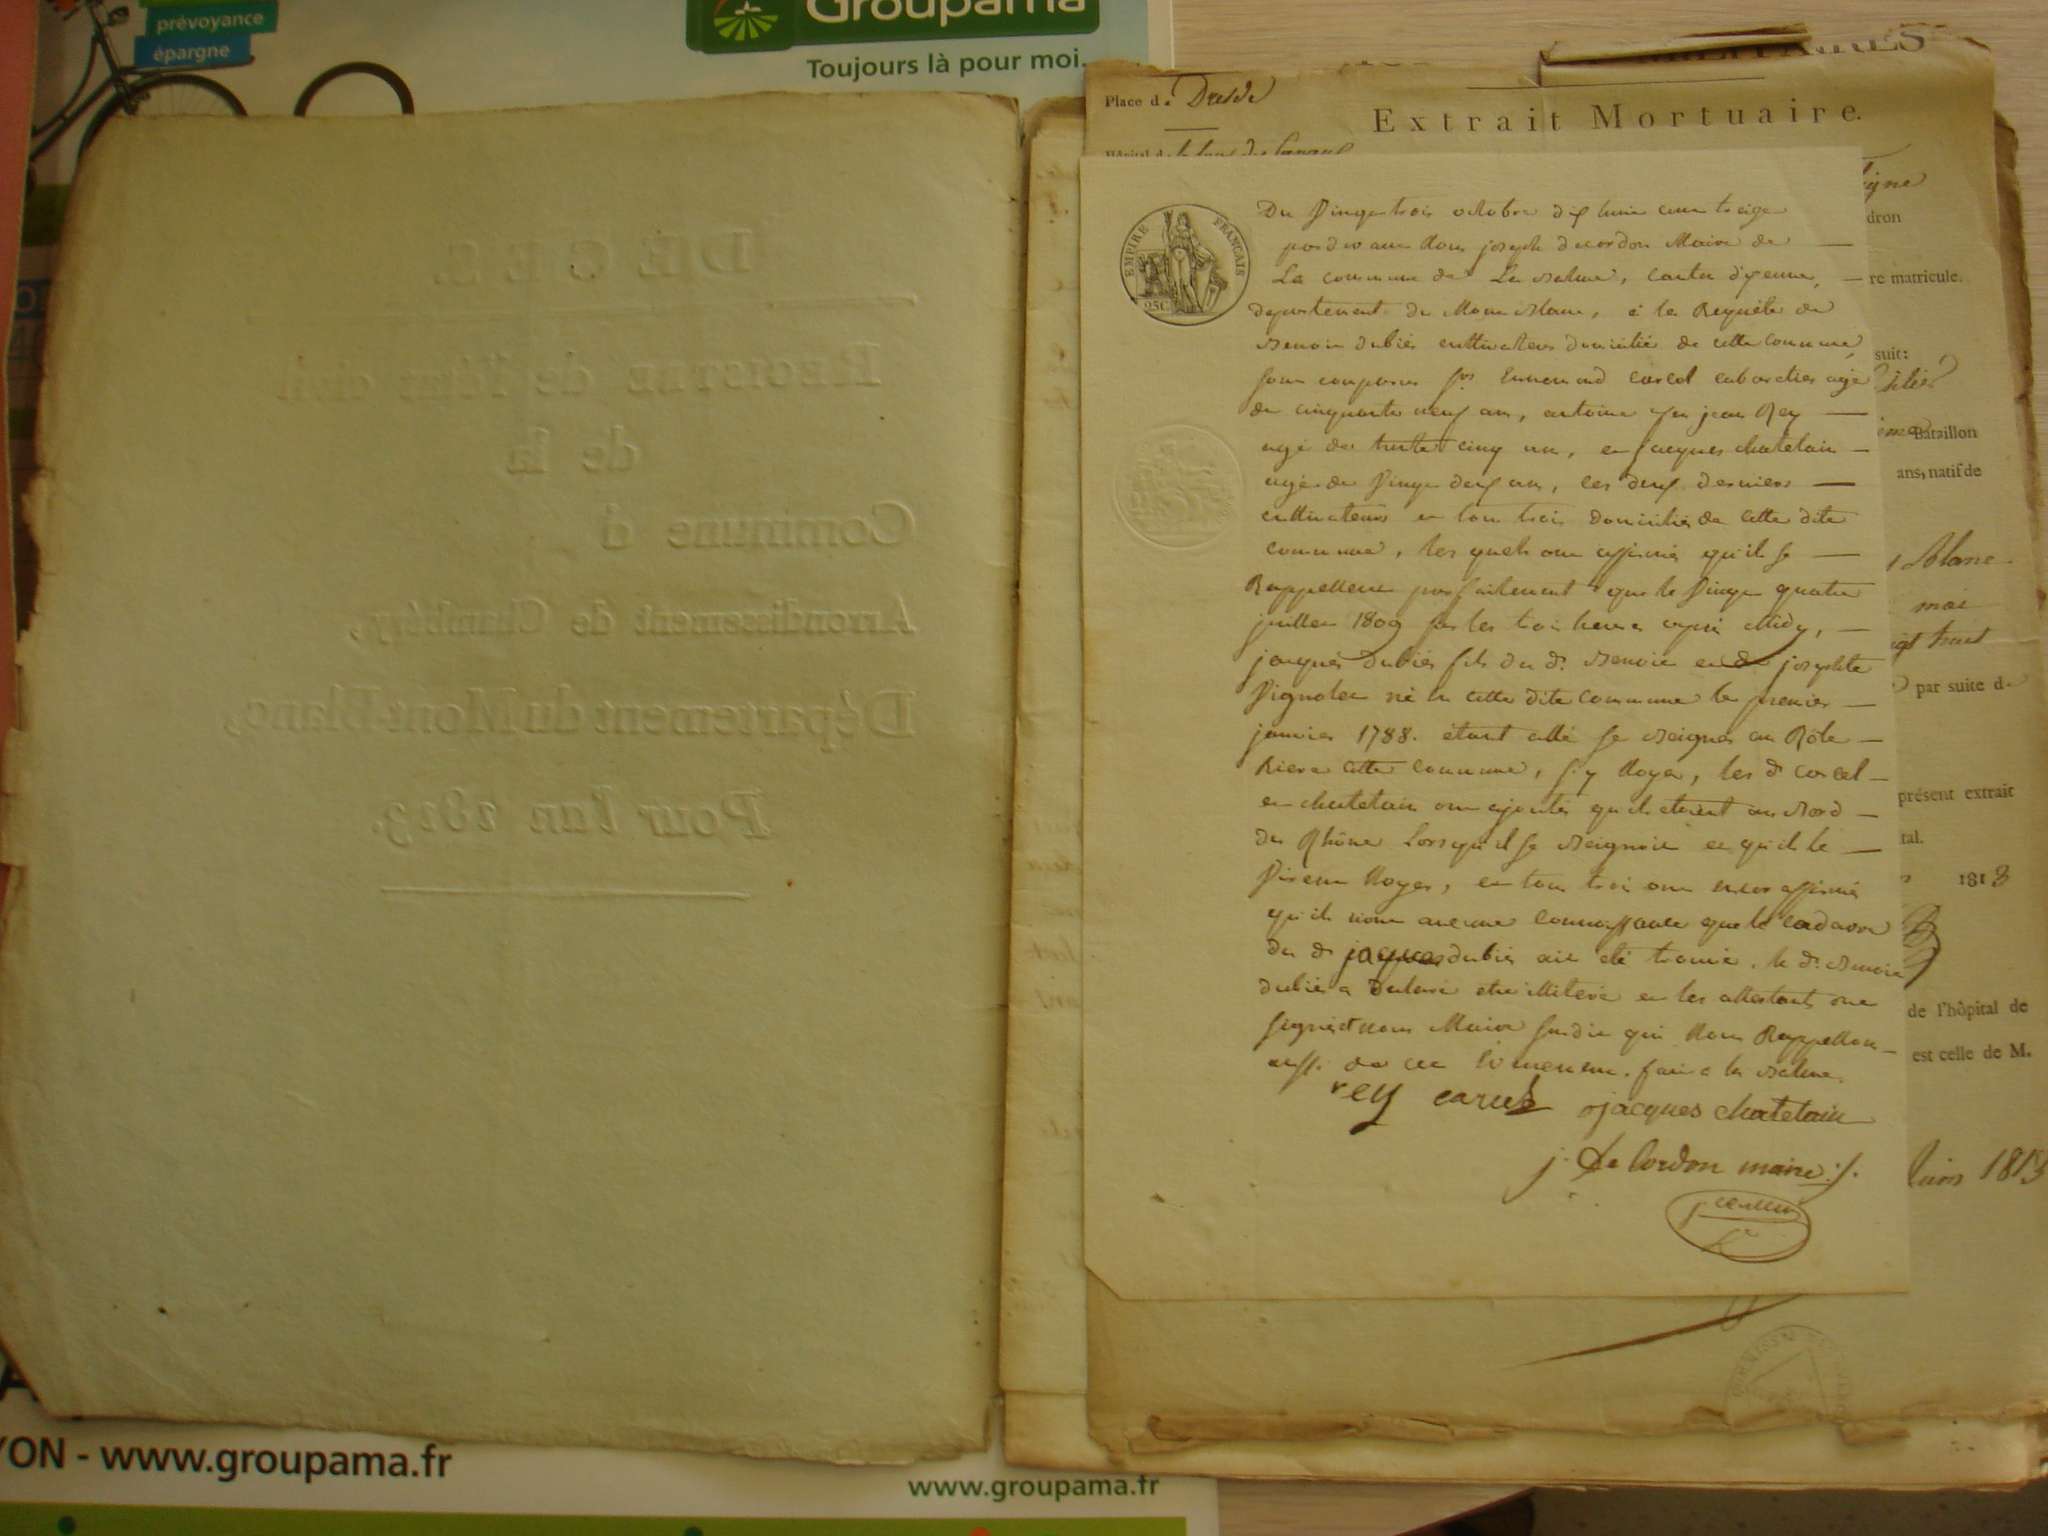 prévoyance
épargne
Groupama
Toujours là pour moi.
DÉCÈS.
REGISTRE de l'État civil
de la
Commune d
Arrondissement de Chambéry,
Département du Mont-Blanc,
Pour l'an 1813.
YON - www.groupama.fr
www.groupama.fr
Place de Dresde
Extrait Mortuaire.
EMPIRE FRANÇAIS
25C
Du Vingt trois octobre dix huit cent treize
par devant Nous joseph decordon Maire de
La commune de La Balme, canton d'yenne,
departement du Mont Blanc, à la Requête de
Benoit dubiés cultivateur domicilié de cette commune,
sont comparus Srs Ennemond carcel cabaretier agé
de cinquante neuf ans, antoine feu jean Rey
agé de trente cinq ans, et jacques chatelain
agé de Vingt deux ans, les deux derniers
cultivateurs et tous trois domiciliés de cette dite
commune, les quels ont affirmé qu'il se
Rappellent parfaitement que le Vingt quatre
juillet 1809 sur les trois heures après Midy,
jacques dubiés fils du dt Benoit et de josephte
Vignolet né en cette dite commune le premier
janvier 1788. étant allé se Beigner au Rône
Riere cette commune, s'y Noya, les dt carcel
et chatelain ont ajouté qu'ils étoient au Bord
du Rhône Lorsqu'il se Beignoit et qu'ils le
Virent Noyer, et tous trois ont encor affirmé
qu'ils n'ont aucune connoissance que le cadavre
du dt jacques dubiés ait été trouvé. le dt Benoit
dubiés a déclaré etre illiteré et les attestants ont
signés et nous Maire susdit qui Nous Rappellons
aussi de cet évènement. fait a la Balme.
rey carcel jacques chatelain
j. De Cordon maire
ligne
dron
re matricule.
suit:
Bataillon
ans, natif de
Blanc
mai
par suite d
présent extrait
tal.
1813
de l'hôpital de
est celle de M.
Juin 1813